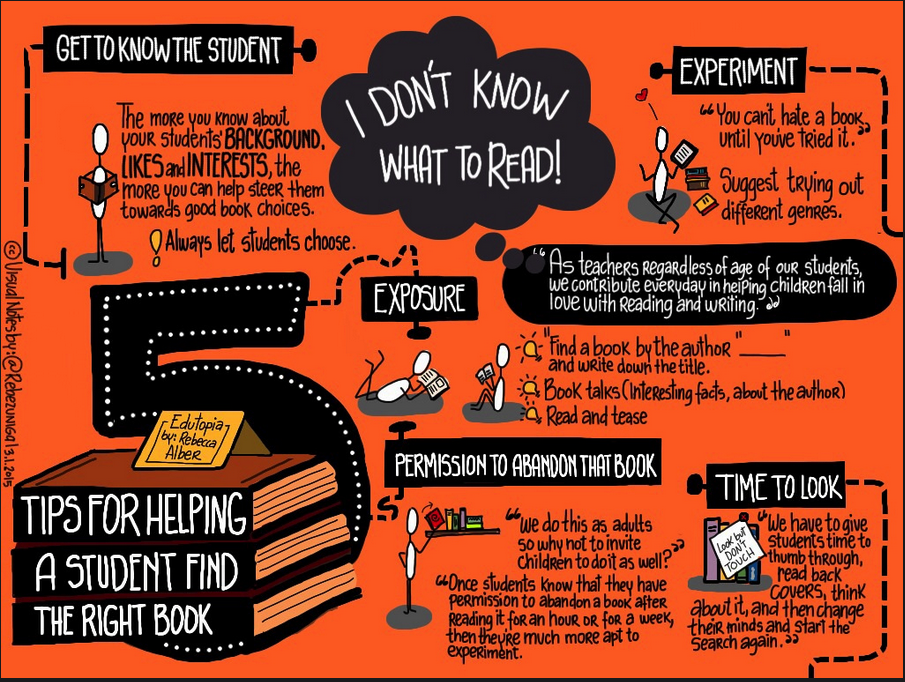 GET TO KNOW THE STUDENT
The more you know about
your students' BACKGROUND,
LIKES and INTERESTS, the
more you can help steer them
towards good book choices.
! Always let students choose.
I DON'T KNOW
WHAT TO READ!
EXPERIMENT
“You can't hate a book
until you've tried it.”
Suggest trying out
different genres.
“As teachers regardless of age of our students,
we contribute everyday in helping children fall in
love with reading and writing.”
EXPOSURE
"Find a book by the author "____"
and write down the title.
Book talks (Interesting facts, about the author)
Read and tease
5
Edutopia
by: Rebecca
Alber
TIPS FOR HELPING
A STUDENT FIND
THE RIGHT BOOK
PERMISSION TO ABANDON THAT BOOK
“We do this as adults
so why not to invite
Children to do it as well?”
“Once students know that they have
permission to abandon a book after
Reading it for an hour or for a week,
then they're much more apt to
experiment.
TIME TO LOOK
Look but
DON'T
TOUCH
“We have to give
students time to
thumb through,
read back
COVERS, think
about it, and then change
their minds and start the
Search again.”
© Visual Notes by: @Rebezuniga | 3.1.2015